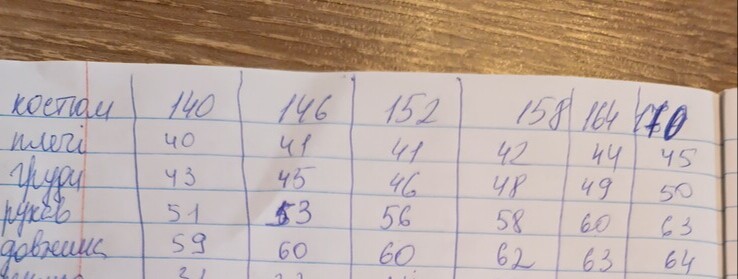 костюм 140 146 152 158 164 170
плечі 40 41 41 42 44 45
груди 43 45 46 48 49 50
рукав 51 53 56 58 60 63
довжина 59 60 60 62 63 64